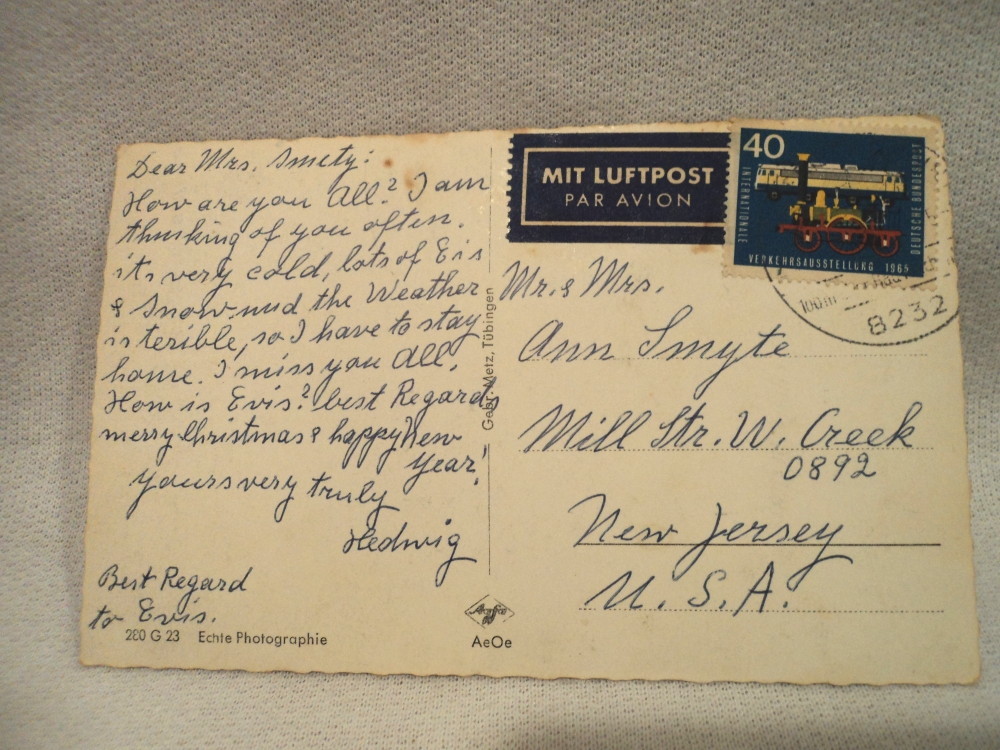 Dear Mrs. Smety:
How are you All? I am
thinking of you often.
it's very cold, lots of Eis
& Snow und the Weather
is terible, so I have to stay
home. I miss you All.
How is Evis? best Regards
merry Christmas & happy New
Year!
yours very truly
Hedwig
Best Regard
to Evis.
280 G 23 Echte Photographie
Gebr. Metz, Tübingen
Agfa
AeOe
MIT LUFTPOST
PAR AVION
40
INTERNATIONALE
VERKEHRSAUSSTELLUNG 1965
DEUTSCHE BUNDESPOST
8232
Mr. & Mrs.
Ann Smyte
Mill Str. W. Creek
0892
New Jersey
U. S. A.